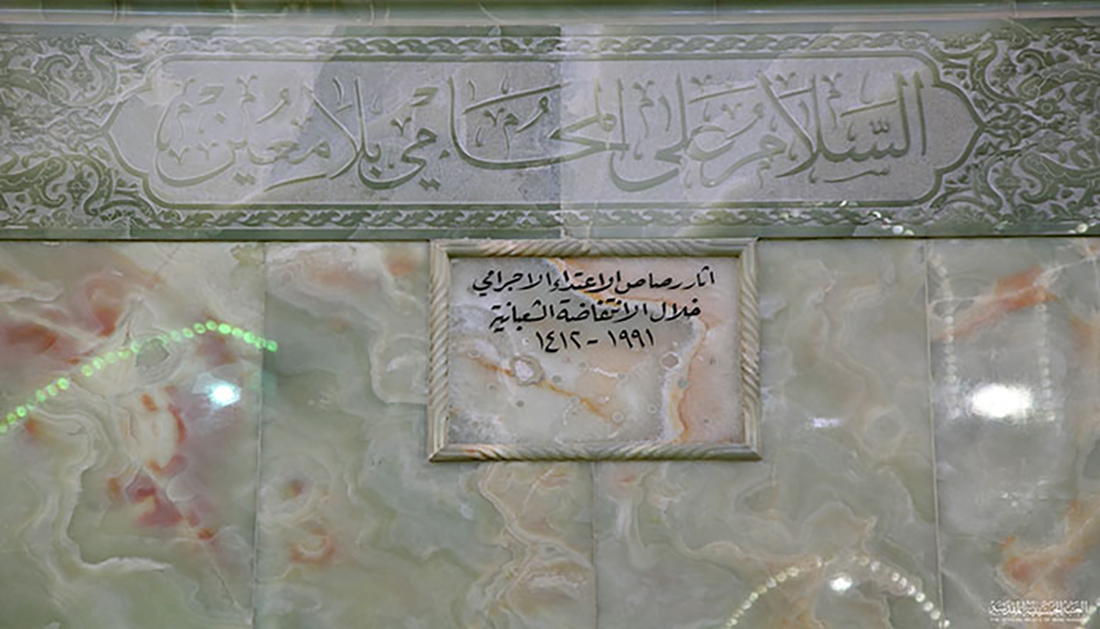 السَّلَامُ عَلَى المُحَامِي بِلَا مُعِين
اثار رصاص الاعتداء الاجرامي
خلال الانتفاضة الشعبانية
١٩٩١ - ١٤١٢
العتبة الحسينية المقدسة